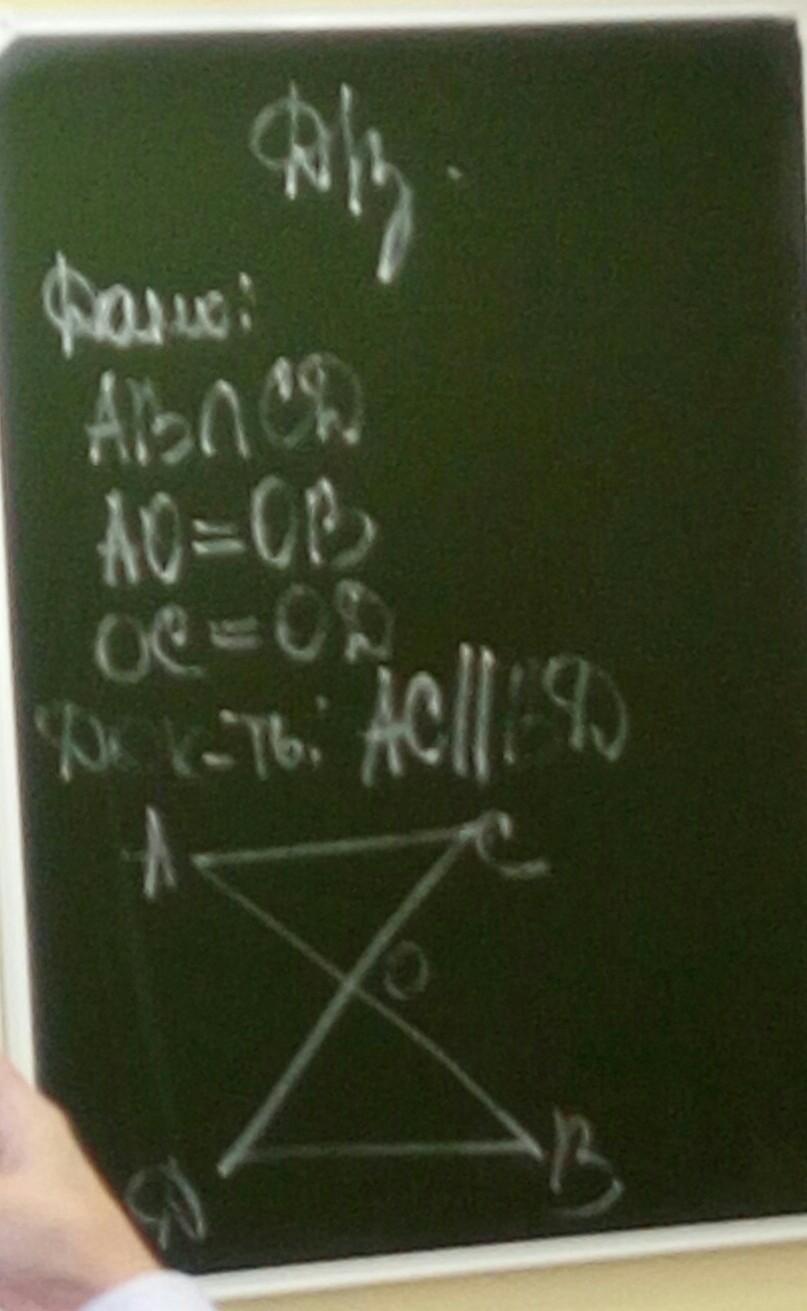 Д/з.
Дано:
AB∩CD
AO=OB
OC=OD
Док-ть: AC||BD
A
C
O
D
B